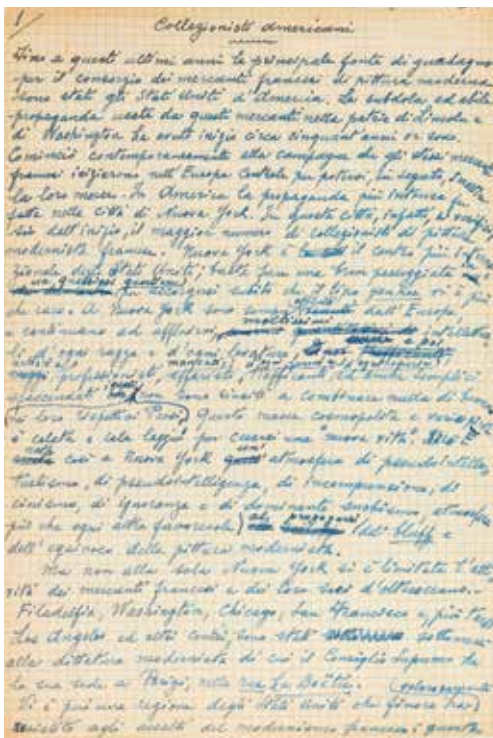 1
Collezionisti americani
Fino a questi ultimi anni la principale fonte di guadagno
per il consorzio dei mercanti francesi di pittura moderna
sono stati gli Stati Uniti d'America. La subdola ed abile
propaganda usata da questi mercanti nella patria di Lincoln e
di Washington ha avuto inizio circa cinquant'anni or sono.
Cominciò contemporaneamente alla campagna che gli stessi mercanti
francesi iniziarono nell'Europa Centrale per potervi, in seguito,
la loro merce. In America la propaganda più intensa fu
fatta nella città di Nuova York. In questa città, infatti, si
sin dall'inizio, il maggior numero di collezionisti di pittura
modernista francese. Nuova York è il centro più
degli Stati Uniti; basta fare una breve passeggiata
subito che il tipo yankee vi è più
che raro. A Nuova York sono dall'Europa,
e continuano ad affluirvi,
di ogni razza e d'ogni
professionisti, affaristi, trafficanti ed anche semplici
sono riusciti a combinare nulla di buono
loro rispettivi Paesi. Questa massa cosmopolita e variopinta
è calata e cala laggiù per crearsi una "nuova vita".
così a Nuova York atmosfera di pseudointellet-
tualismo, di pseudointelligenza, di incomprensione, di
cinismo, di ignoranza e di snobismo, atmosfera
più che ogni altra favorevole del bluff e
dell'equivoco della pittura modernista.
Ma non alla sola Nuova York si è limitata l'atti-
vità dei mercanti francesi e dei loro soci d'oltreoceano.
Filadelfia, Washington, Chicago, San Francisco e, più tardi
Los Angeles ed altri centri, sono stati sottomessi
alla dittatura modernista di cui il Consiglio Supremo ha
la sua sede a Parigi, nella rue La Boëtie.
Vi è però una regione degli Stati Uniti che finora ha
resistito agli assalti del modernismo francese; questa